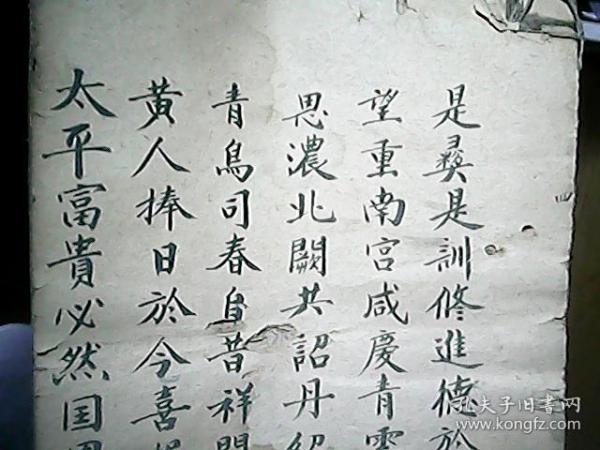 是彝是訓修進德於
望重南宮咸慶青雲
恩濃北闕共詔丹
青鳥司春自昔祥
黃人捧日於今喜
太平富貴必然国
孔夫子旧書网
www.kongfz.com